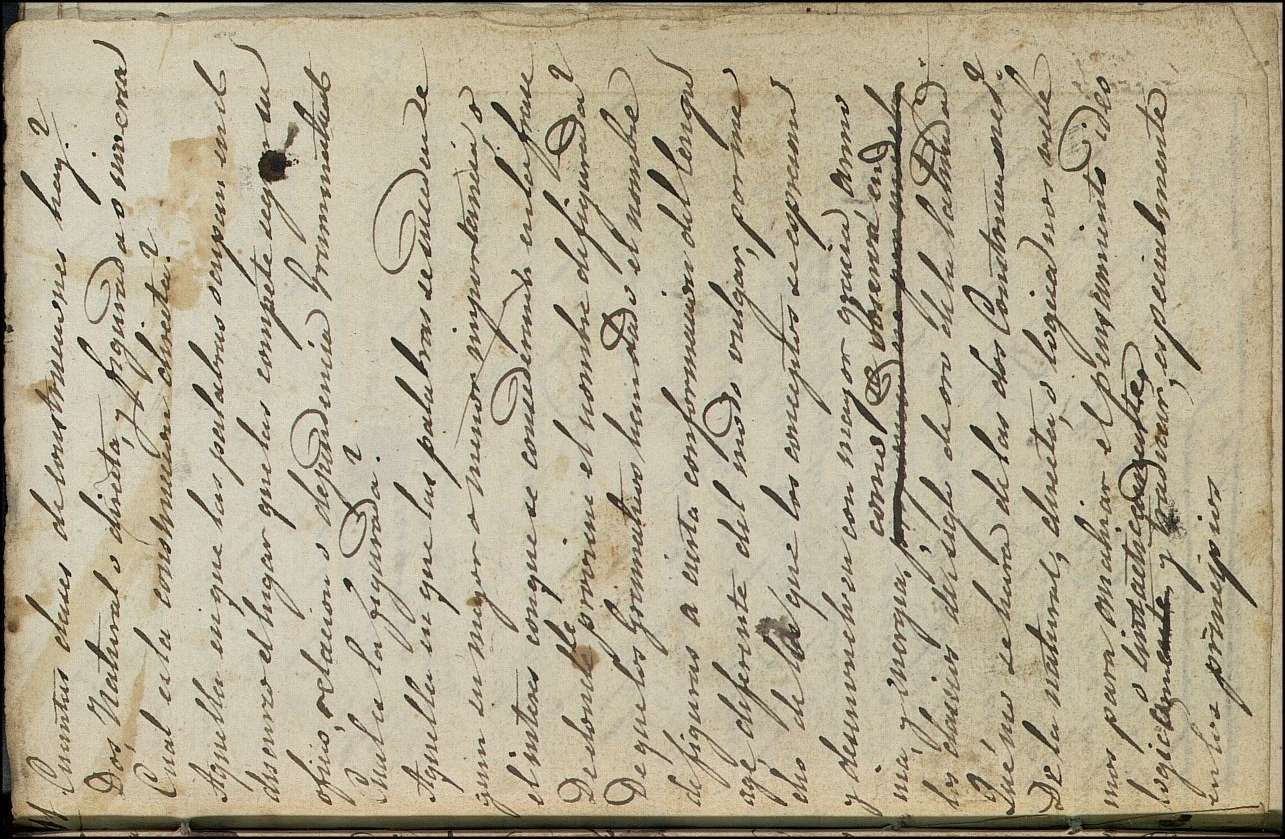 Cuantas clases de construcciones hay?
Dos Natural o directa, y figurada o inversa
Cual es la construccion directa?
Aquella en que las palabras ocupan en el
discurso el lugar que las compete segun su
oficio, relacion o dependencia Gramatical
Cual es la figurada?
Aquella en que las palabras se suceden se
gun su mayor o menor importancia o
el interes con que se consideran en la frase
De donde le proviene el nombre de figurada?
De que los Gramaticos han dado el nombre
de figuras a cierta conformacion del lengu
age diferente del modo vulgar, por me
dio de la que los conceptos se espresan
y desenvuelven con mayor gracia ani
como se observará en
ma y energia,
los clasicos del siglo de oro de la latinidad
Que uso se hara de las dos Construcciones?
De la natural, directa, o logica nos vale
mos para analizar el pensamiento ideo
logica o sintacticamente
y traducir, especialmente
en los principios